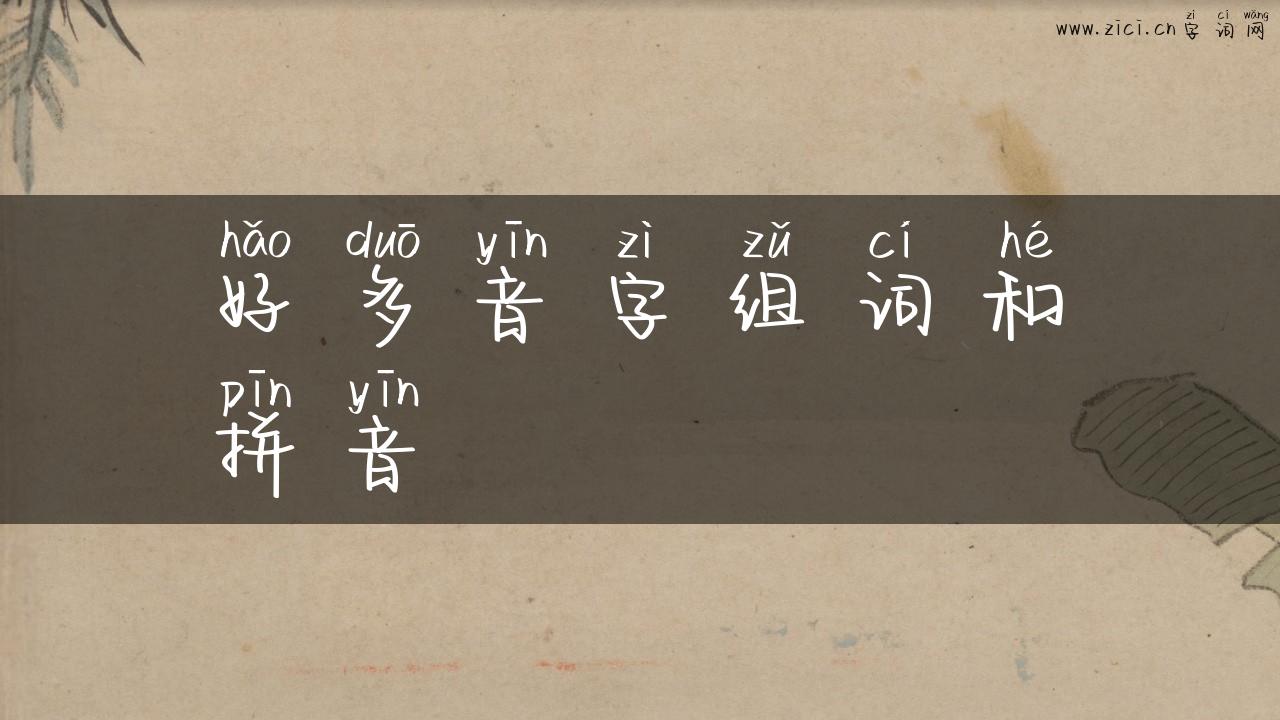 zì cí wǎng
www.zici.cn 字词网
hǎo duō yīn zì zǔ cí hé
好多音字组词和
pīn yīn
拼音